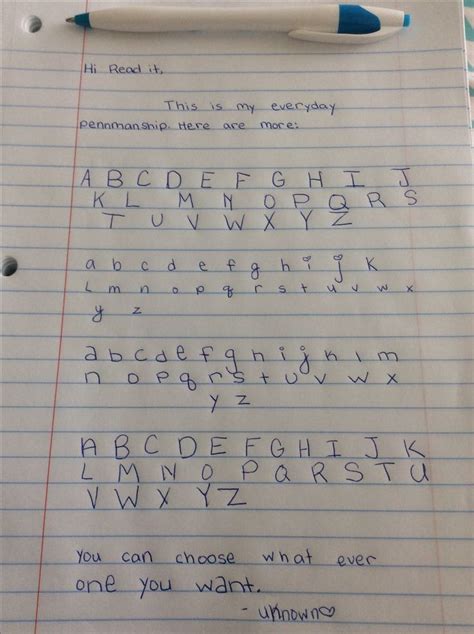 Hi Read it,
This is my everyday
pennmanship. Here are more:
A B C D E F G H I J
K L M N O P Q R S
T U V W X Y Z
a b c d e f g h i j K
L m n o p q r s t u v w x
y z
a b c d e f g h i j k l m
n o p q r s t u v w x
y z
A B C D E F G H I J K
L M N O P Q R S T U
V W X Y Z
You can choose what ever
one you want.
- uknown♡